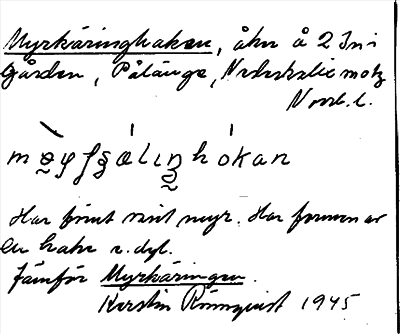 Myrkäringhaken, åker å 2 In i
Gården, Pålänge, Nederkalix motz
Norrb. l.
Har funnit vid myr. Har formen av
en hake e. dyl.
Jämför Myrkäringen.
Kerstin Rönnquist 1945